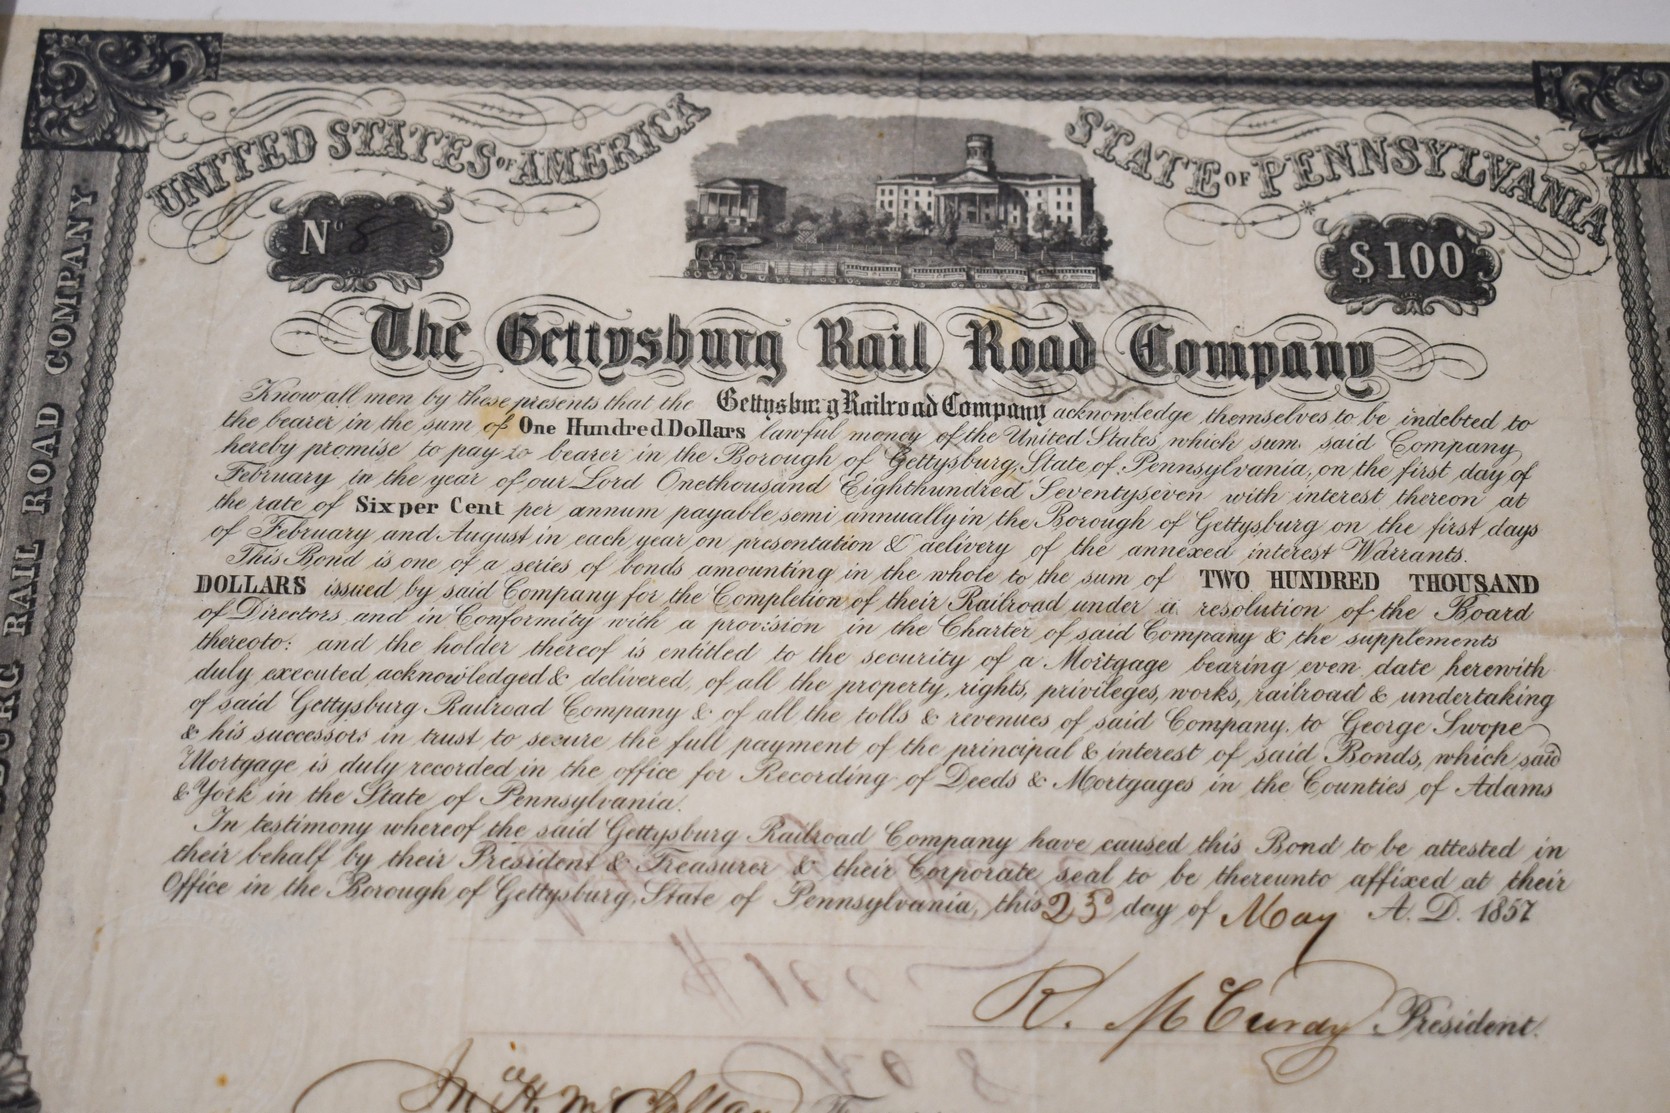 UNITED STATES OF AMERICA
STATE OF PENNSYLVANIA
No 5
$100
The Gettysburg Rail Road Company
Know all men by these presents that the Gettysburg Railroad Company acknowledge themselves to be indebted to
the bearer in the sum of One Hundred Dollars lawful money of the United States, which sum said Company
hereby promise to pay to bearer in the Borough of Gettysburg, State of Pennsylvania, on the first day of
February in the year of our Lord One thousand Eight hundred Seventy seven with interest thereon at
the rate of Six per Cent per annum payable semi annually in the Borough of Gettysburg on the first days
of February and August in each year on presentation & delivery of the annexed interest Warrants.
This Bond is one of a series of bonds amounting in the whole to the sum of TWO HUNDRED THOUSAND
DOLLARS issued by said Company for the Completion of their Railroad under a resolution of the Board
of Directors, and in Conformity with a provision in the Charter of said Company & the supplements
thereto: and the holder thereof is entitled to the security of a Mortgage bearing even date herewith
duly executed, acknowledged & delivered, of all the property, rights, privileges, works, railroad & undertaking
of said Gettysburg Railroad Company & of all the tolls & revenues of said Company, to George Swope
& his successors in trust to secure the full payment of the principal & interest of said Bonds, which said
Mortgage is duly recorded in the office for Recording of Deeds & Mortgages in the Counties of Adams
& York in the State of Pennsylvania.
In testimony whereof the said Gettysburg Railroad Company have caused this Bond to be attested in
their behalf by their President & Treasurer & their Corporate seal to be thereunto affixed at their
Office in the Borough of Gettysburg, State of Pennsylvania, this 23d day of May A. D. 1857
R. McCurdy President.
RAIL ROAD COMPANY